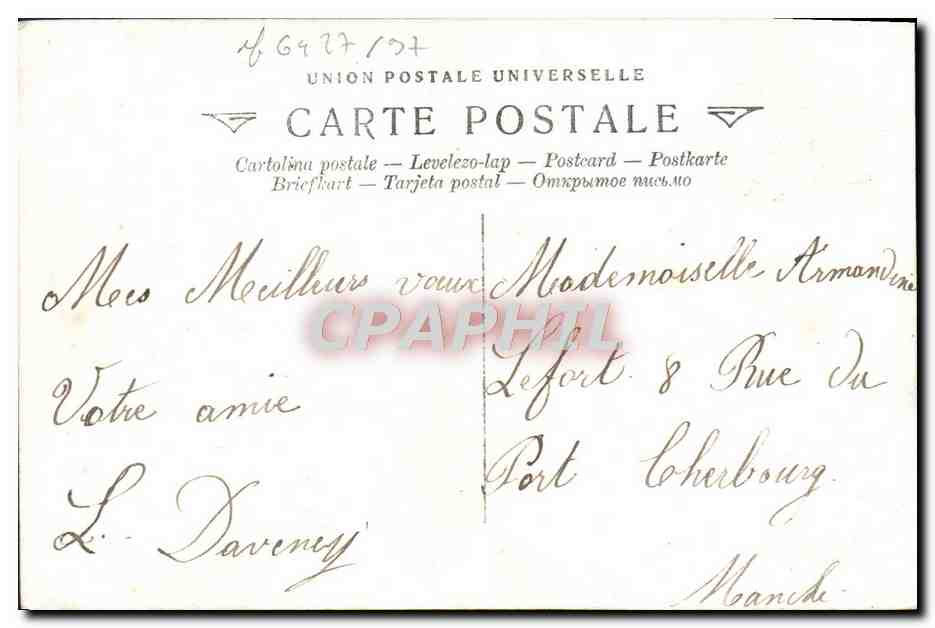 rf 6427/97
UNION POSTALE UNIVERSELLE
CARTE POSTALE
Cartolina postale — Levelezo-lap — Postcard — Postkarte
Briefkart — Tarjeta postal — Открытое письмо
Mes Meilleurs vœux
Votre amie
L. Daveney
Mademoiselle Armandine
Lefort 8 Rue du
Port Cherbourg.
Manche.
CPAPHIL